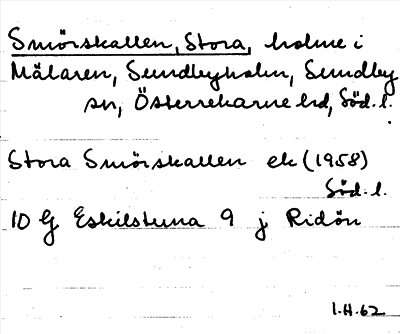 Smörskallen, Stora, holme i
Mälaren, Sundbyholm, Sundby
sn, Österrekarne hd, Söd. l.
Stora Smörskallen ek (1958)
Söd. l.
10 G Eskilstuna 9 j Ridön
1.H.62